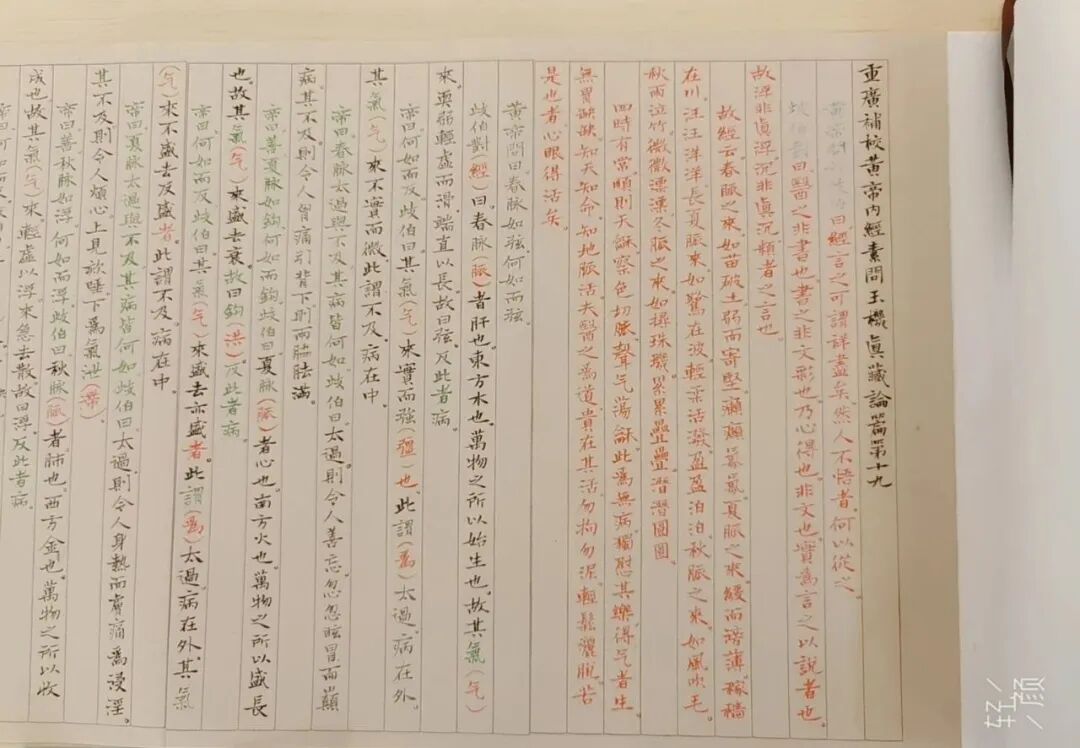 重廣補校黃帝內經素問玉機眞藏論篇第十九
曰經言之可謂詳盡矣然人不悟者何以從之
歧伯曰醫之非書也書之非文彩也乃心得也非文也實爲言之以說者也
故浮非眞浮沉非眞沉類者之言也
故經云春脈之來如苗破土弱而寄堅夏脈之來緩而滂薄稼穡
在川汪汪洋洋長夏脈來如鷩在波輕柔活潑盈盈泊泊秋脈之來如風吹毛
秋雨泣竹微微漂漂冬脈之來如撏珠璣累累疊疊潛潛圓圓
四時有常順則天龢察色切脈聲气蕩龢此爲無病獨慰其樂得气者生
無胃缺缺知天知命知地脈活夫醫之爲道貴在其活勿拘勿泥輕鬆灑脫苦
是也者心眼得活矣
黃帝問曰春脈如弦何如而弦
歧伯對(經)曰春脈(脈)者肝也東方木也萬物之所以始生也故其氣(气)
來耎弱輕虛而滑端直以長故曰弦反此者病
帝曰何如而反歧伯曰其氣(气)來實而强(疆)也此謂(爲)太過病在外
其氣(气)來不實而微此謂不及病在中
帝曰春脈太過與不及其病皆何如歧伯曰太過則令人善忘忽忽眩冒而巔
病其不及則令人胷痛引背下則兩脇胠滿
帝曰善夏脈如鈎何如而鈎歧伯曰夏脈(脈)者心也南方火也萬物之所以盛長
也故其氣(气)來盛去衰故曰鈎(洪)反此者病
帝曰何如而反歧伯曰其氣(气)來盛去亦盛者此謂(爲)太過病在外其氣
(气)來不盛去反盛者此謂不及病在中
帝曰夏脈太過與不及其病皆何如歧伯曰太過則令人身熱而膚痛爲浸淫
其不及則令人煩心上見欬唾下爲氣泄(帶)
帝曰善秋脈如浮何如而浮歧伯曰秋脈(脈)者肺也西方金也萬物之所以收
成也故其氣(气)來輕虛以浮來急去散故曰浮反此者病
帝曰何如而反
轻颜